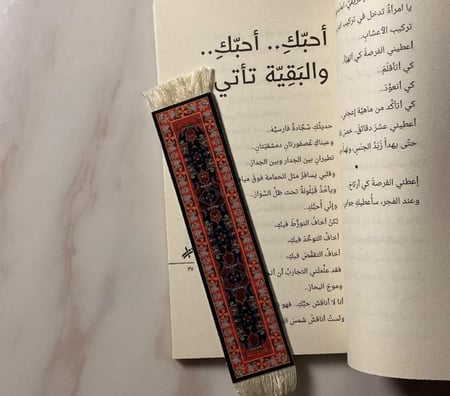 أحبّكِ.. أحبّكِ..
والبَقِيّة تأتي
حديثُكِ سُجّادةٌ فارسيّة..
وعيناكِ عُصفورتانِ دمشقيّتانِ..
تطيرانِ بين الجدارِ وبين الجدارْ..
وقلبي يسافرُ مثل الحمامة فوق
ويأخذُ قَيْلُولةً تحت ظلِّ السّوارْ..
وإنّي أُحبُّكِ..
لكنْ أخافُ التورُّطَ فيكِ،
أخافُ التوحُّدَ فيكِ،
أخافُ التقمُّصَ فيكِ،
فقد علّمتني التجاربُ أن
وموجَ البحارْ..
أنا لا أناقشُ حبَّكِ.. فهو
ولستُ أناقشُ شمسَ
٣٧
يا امرأةً تدخل في تركيب
تركيب الأعشابْ..
أعطيني الفرصةَ كي
كي أتأقلَمْ..
كي أتعوَّدْ..
كي أتأكّد من ماهيّة
أعطيني عشرَ دقائقَ..
حتّى يهدأَ زَبَدُ الجِنْسِ
أعطيني الفرصةَ كي أرتاحْ..
وعند الفجر، سأعطيكِ